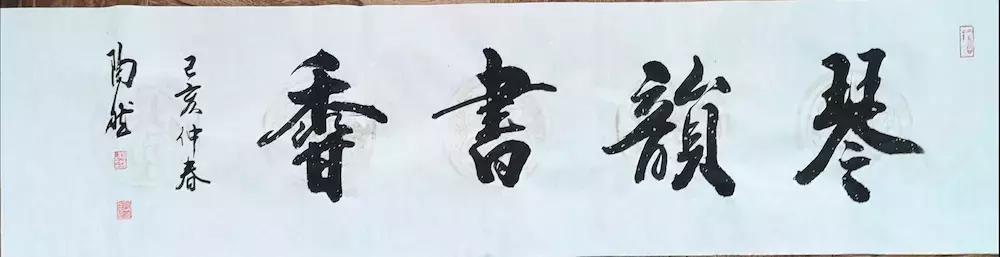 琴韻書香
己亥仲春
陶然